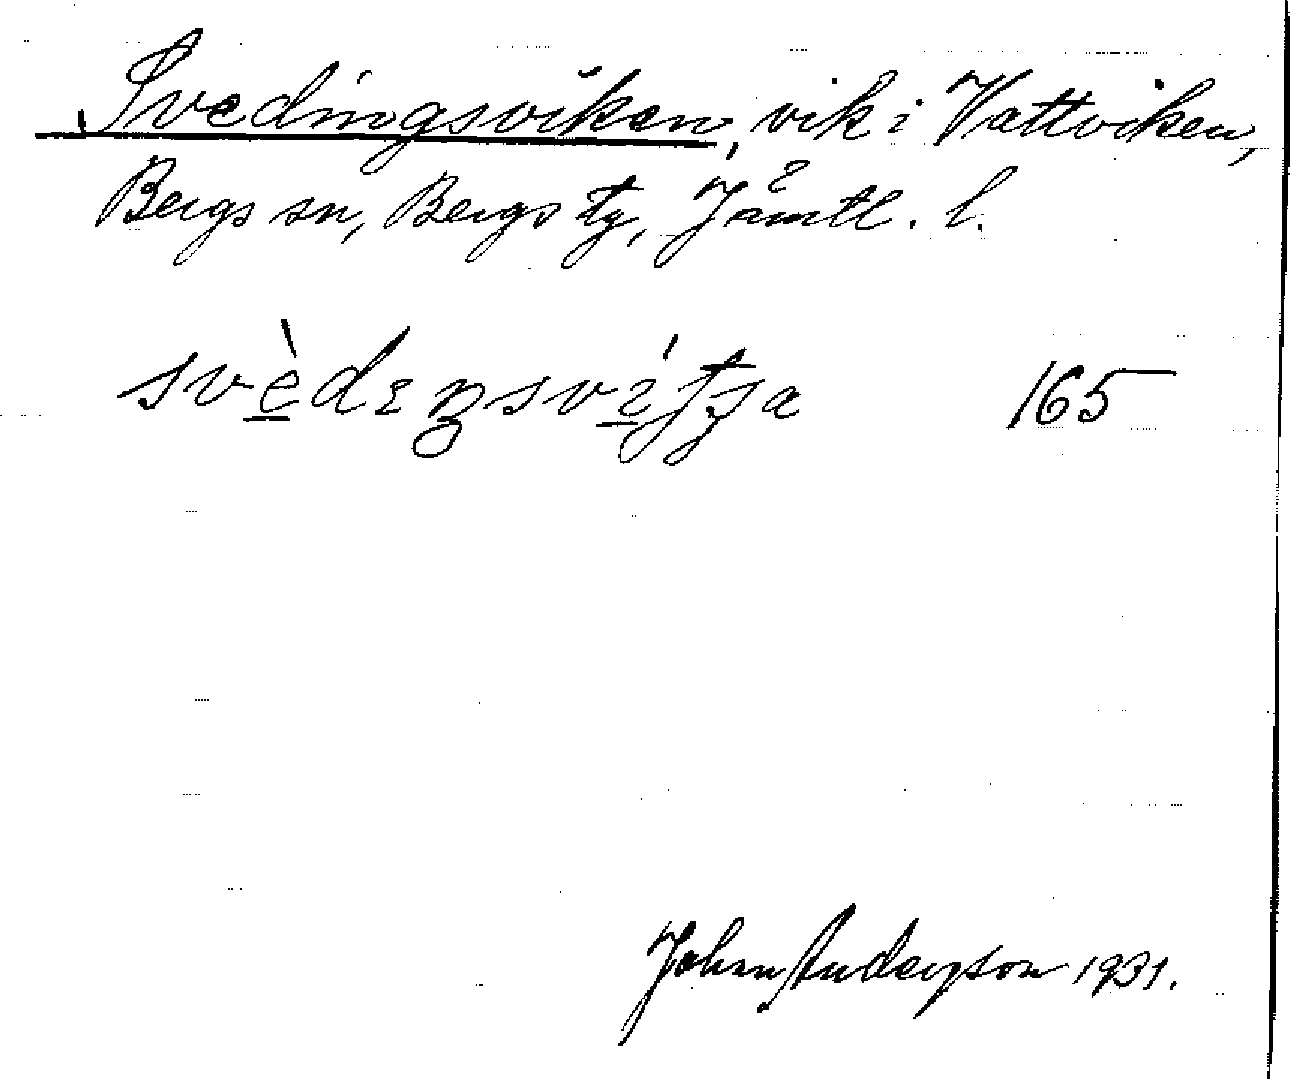 Svedingsviken, vik i Vattviken,
Bergs sn, Bergs tg, Jämtl. l.
165
John Andersson 1931.